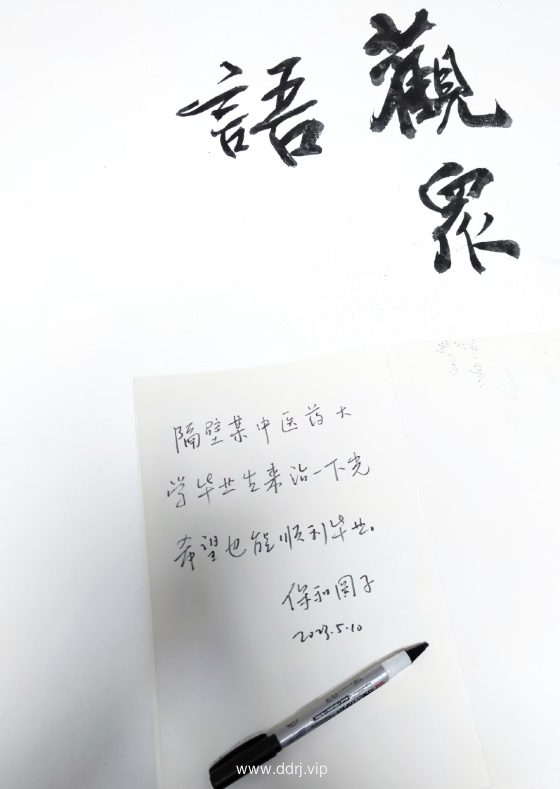 觀眾
語
隔壁某中医药大
学毕业生来沾一下光
希望也能顺利毕业。
保和子
2023.5.10
www.ddrj.vip